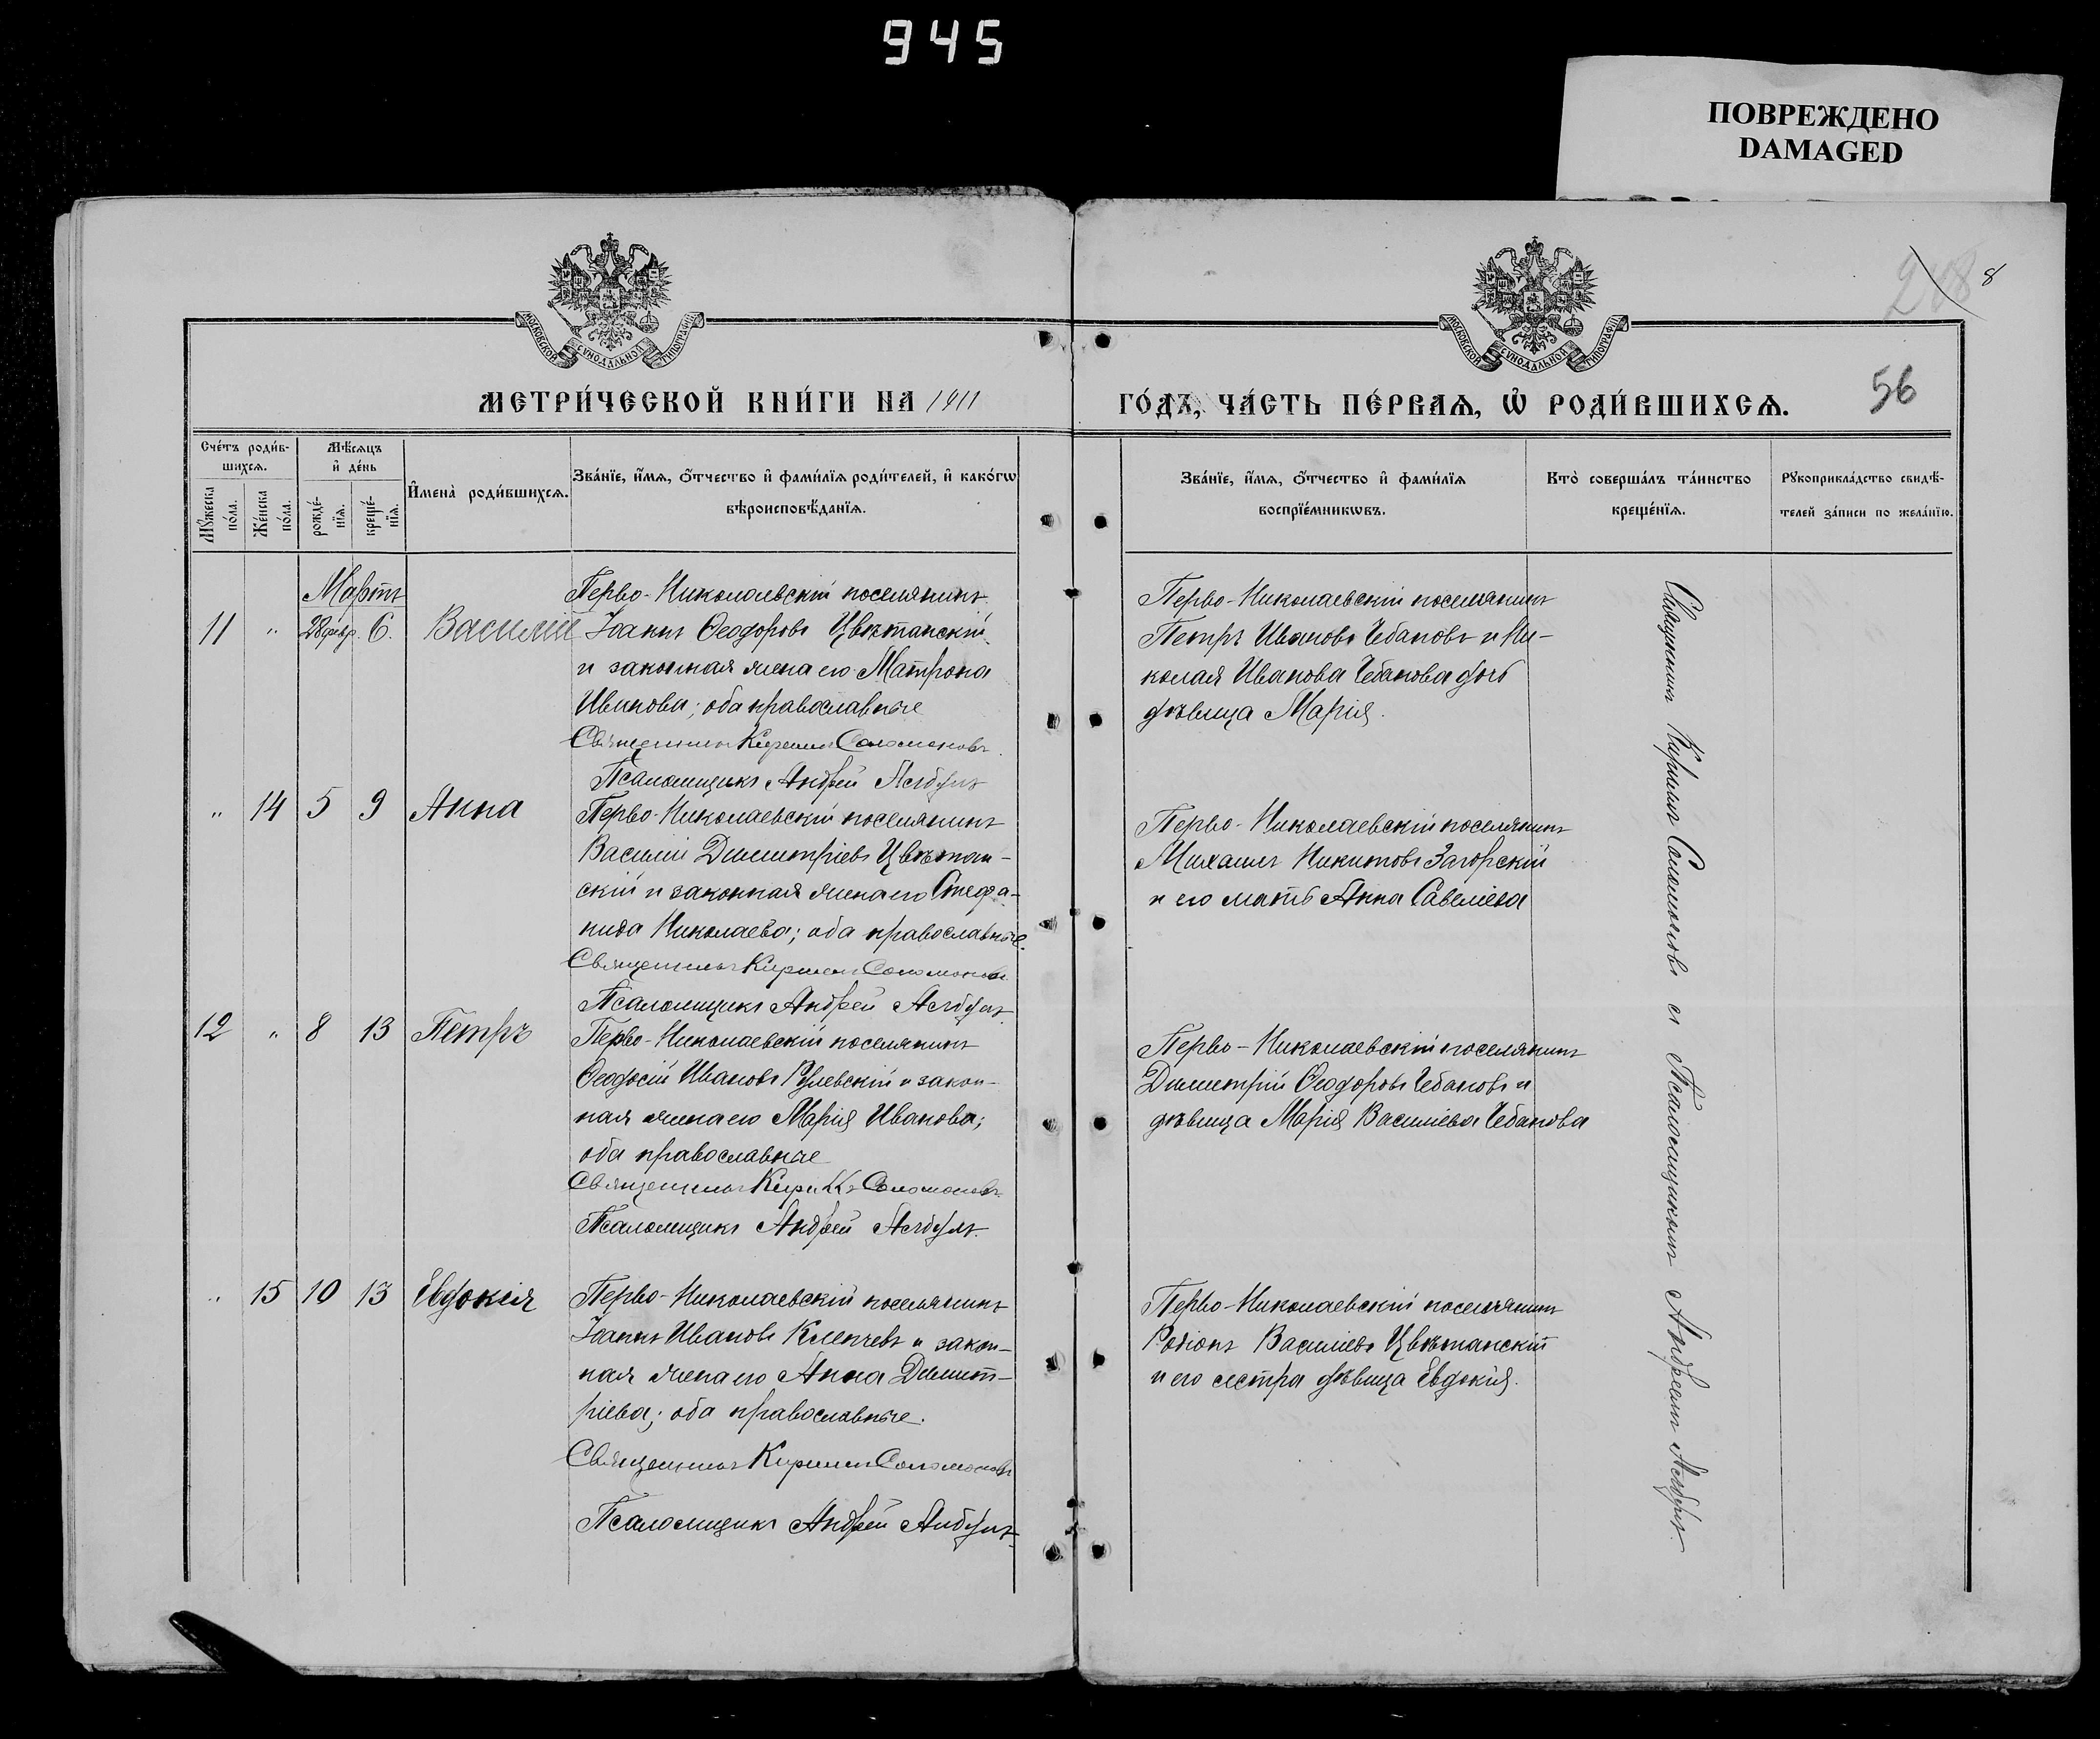 945
ПОВРЕЖДЕНО
DAMAGED
МОСКОВСКОЙ СѴНОДАЛЬНОЙ ТИПОГРАФІИ
МОСКОВСКОЙ СѴНОДАЛЬНОЙ ТИПОГРАФІИ
8
56
МЕТРИ́ЧЕСКОЙ КНИ́ГИ НА 1911
ГО́ДЪ, ЧА́СТЬ ПЕ́РВАѦ, Ѡ҆ РОДИ́ВШИХСѦ.
Сче́тъ роди́в-
шихсѧ.
Мѣ́сѧцъ
и҆ де́нь
Мꙋ́жеска
по́ла.
Же́нска
по́ла.
рожде́-
нїѧ.
креще́-
нїѧ.
И҆мена̀ роди́вшихсѧ.
Зва́нїе, и҆́мѧ, ѻ҆́тчество и҆ фами́лїѧ роди́телей, и҆ како́гѡ
вѣроисповѣ́данїѧ.
Зва́нїе, и҆́мѧ, ѻ҆́тчество и҆ фами́лїѧ
воспрїе́мникѡвъ.
Кто̀ соверша́лъ та́инство
креще́нїѧ.
Рꙋкоприкла́дство свидѣ́-
телей за́писи по жела́нїю.
Мартъ
11 " 28 февр. 6. Василій
Перво-Николаевскій поселянинъ
Іоаннъ Ѳеодоровъ Цвѣтанскій
и законная жена его Матрона
Иванова; оба православные
Священникъ Кириллъ Соломоновъ
Псаломщикъ Андрей
Перво-Николаевскій поселянинъ
Петръ Ивановъ Чебановъ и Ни-
колая Иванова Чебанова дочь
дѣвица Марія.
" 14 5 9 Анна
Перво-Николаевскій поселянинъ
Василій Димитріевъ Цвѣтан-
скій и законная жена его Стефа-
нида Николаева; оба православные.
Священникъ Кириллъ Соломоновъ
Псаломщикъ Андрей
Перво-Николаевскій поселянинъ
Михаилъ Никитовъ Загорскій
и его мать Анна Савеліева
12 " 8 13 Петръ
Перво-Николаевскій поселянинъ
Ѳеодосій Ивановъ и закон-
ная жена его Марія Иванова;
оба православные
Священникъ Кириллъ Соломоновъ
Псаломщикъ Андрей
Перво-Николаевскій поселянинъ
Димитрій Ѳеодоровъ Чебановъ и
дѣвица Марія Василіева Чебанова
" 15 10 13 Евдокія
Перво-Николаевскій поселянинъ
Іоаннъ Ивановъ и закон-
ная жена его Анна Димит-
ріева; оба православные.
Священникъ Кириллъ Соломоновъ
Псаломщикъ Андрей
Перво-Николаевскій поселянинъ
Родіонъ Василіевъ Цвѣтанскій
и его сестра дѣвица Евдокія.
Священникъ Кириллъ Соломоновъ съ Псаломщикомъ Андреемъ